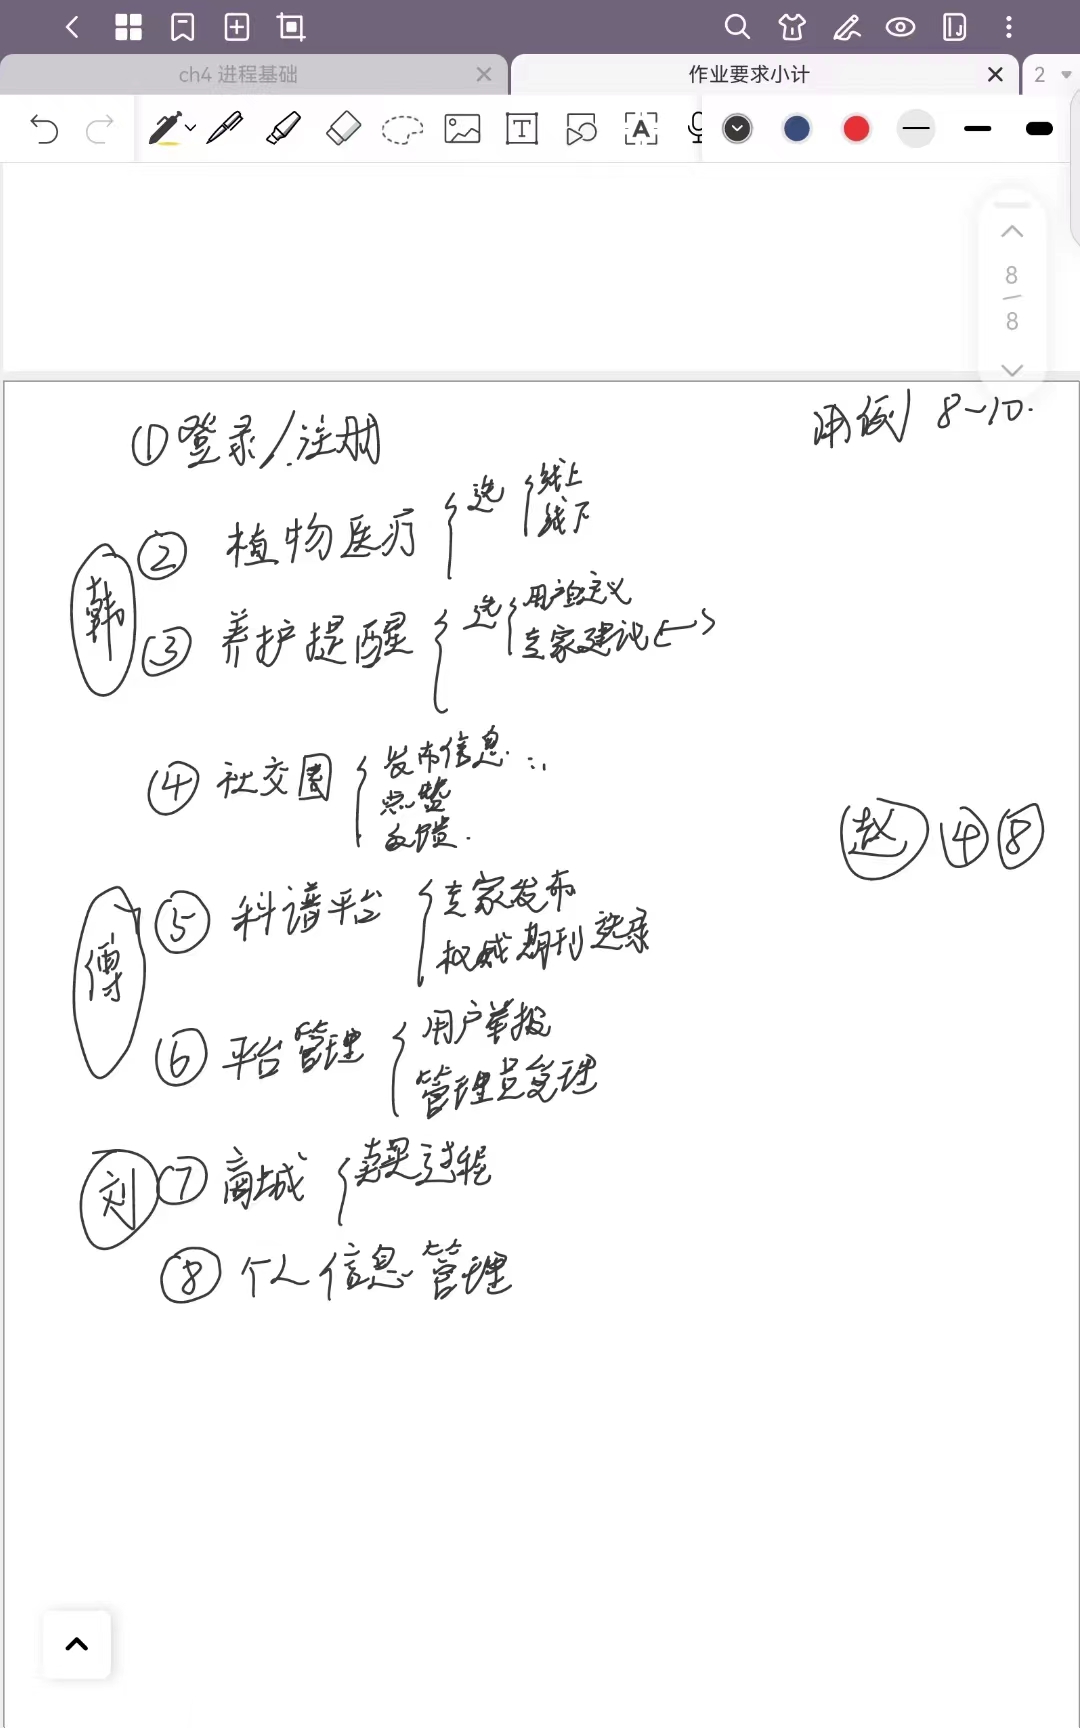 ch4 进程基础
作业要求小计
2
8
8
用例 8~10.
①登录/注册
韩
② 植物医疗 选 线上
线下
③ 养护提醒 选 用户自定义
专家建议
④ 社交圈 发布信息
点赞
反馈.
赵 ④ ⑧
傅
⑤ 科谱平台 专家发布
权威期刊选录
⑥ 平台管理 用户举报
管理员受理
刘 ⑦ 商城 卖买过程
⑧ 个人信息管理